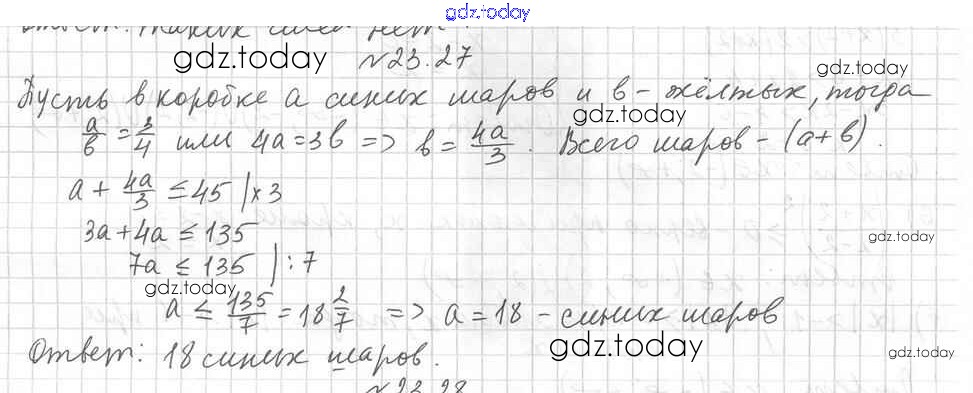 gdz.today
Ответ: таких
gdz.today
№23.27
gdz.today
Пусть в коробке a синих шаров и в - жёлтых, тогда
gdz.today
a/в = 3/4 или 4a = 3в => в = 4a/3. Всего шаров - (a+в).
a + 4a/3 ≤ 45 | ×3
3a + 4a ≤ 135
gdz.today
7a ≤ 135 | : 7
gdz.today
a ≤ 135/7 = 18 2/7 => a = 18 - синих шаров
Ответ: 18 синих шаров.
gdz.today
gdz.today
№23.28